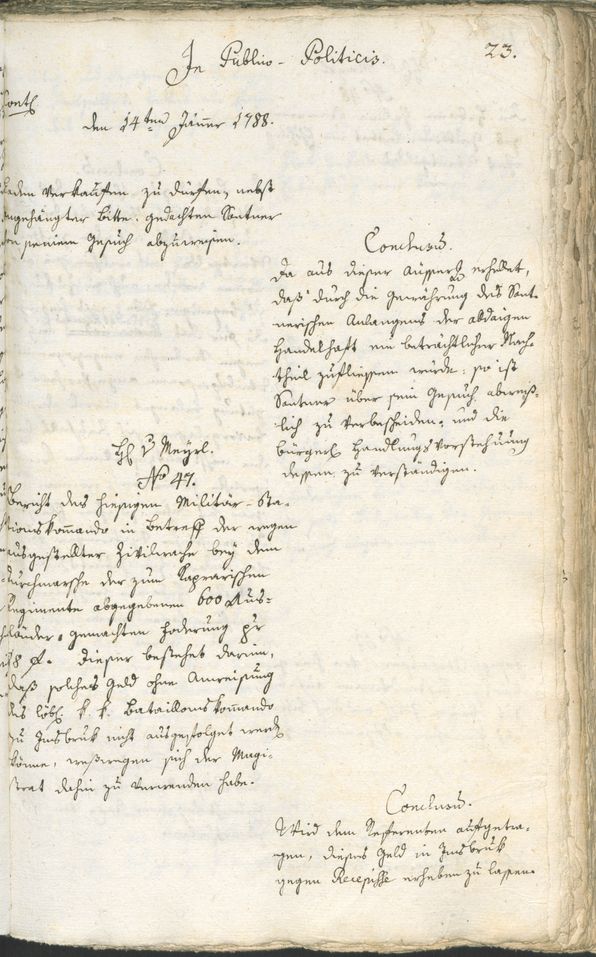 In Publico-Politicis.
23.
den 14ten Jäner 1788.
verkaufen zu dürfen, nebst
angehängter Bitte, gedachten Santner
von seinem Gesuch abzuweisen.
Conclusum.
Da aus dieser Äusserg erhellet,
daß durch die Gewährung des Sant-
nerischen Anlangens der
Handelschaft ein beträchtlicher Nach-
theil zufliessen würde: so ist
Santner über sein Gesuch abweiß-
lich zu verbescheiden, und die
bürgerl Handlungsvorstehung
dessen zu verständigen.
H v Meyrl.
No 47.
Bericht des hiesigen Militär-Sta-
tionskommando in Betreff der wegen
ausgestellter Zivilwache bey dem
Durchmarsche der zum Kaprarischen
Regimente abgegebenen 600 Aus-
länder, gemachten Foderung pr
18 f. Dieser bestehet darinn,
daß solches Geld ohne Anweisung
des löbl k. k. Bataillonskommando
zu Insbruk nicht ausgefolget werden
könne, weßwegen sich der Magi-
strat dahin zu verwenden habe.
Conclusum.
Wird dem Referenten aufgetra-
gen, dieses Geld in Insbruk
gegen Recepisse erheben zu lassen.